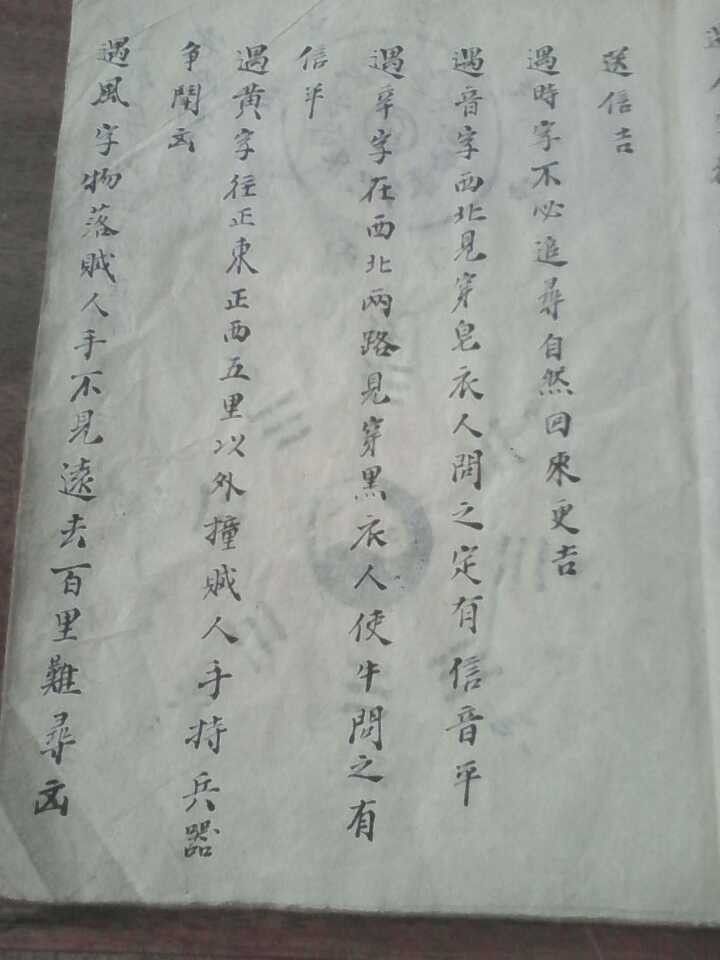 送信吉
遇時字不必追尋自然回來更吉
遇音字西北見穿皂衣人問之定有信音平
遇辛字在西北兩路見穿黑衣人使牛問之有
信平
遇黄字往正東正西五里以外撞賊人手持兵器
争鬧凶
遇風字物落賊人手不見遠去百里難尋凶